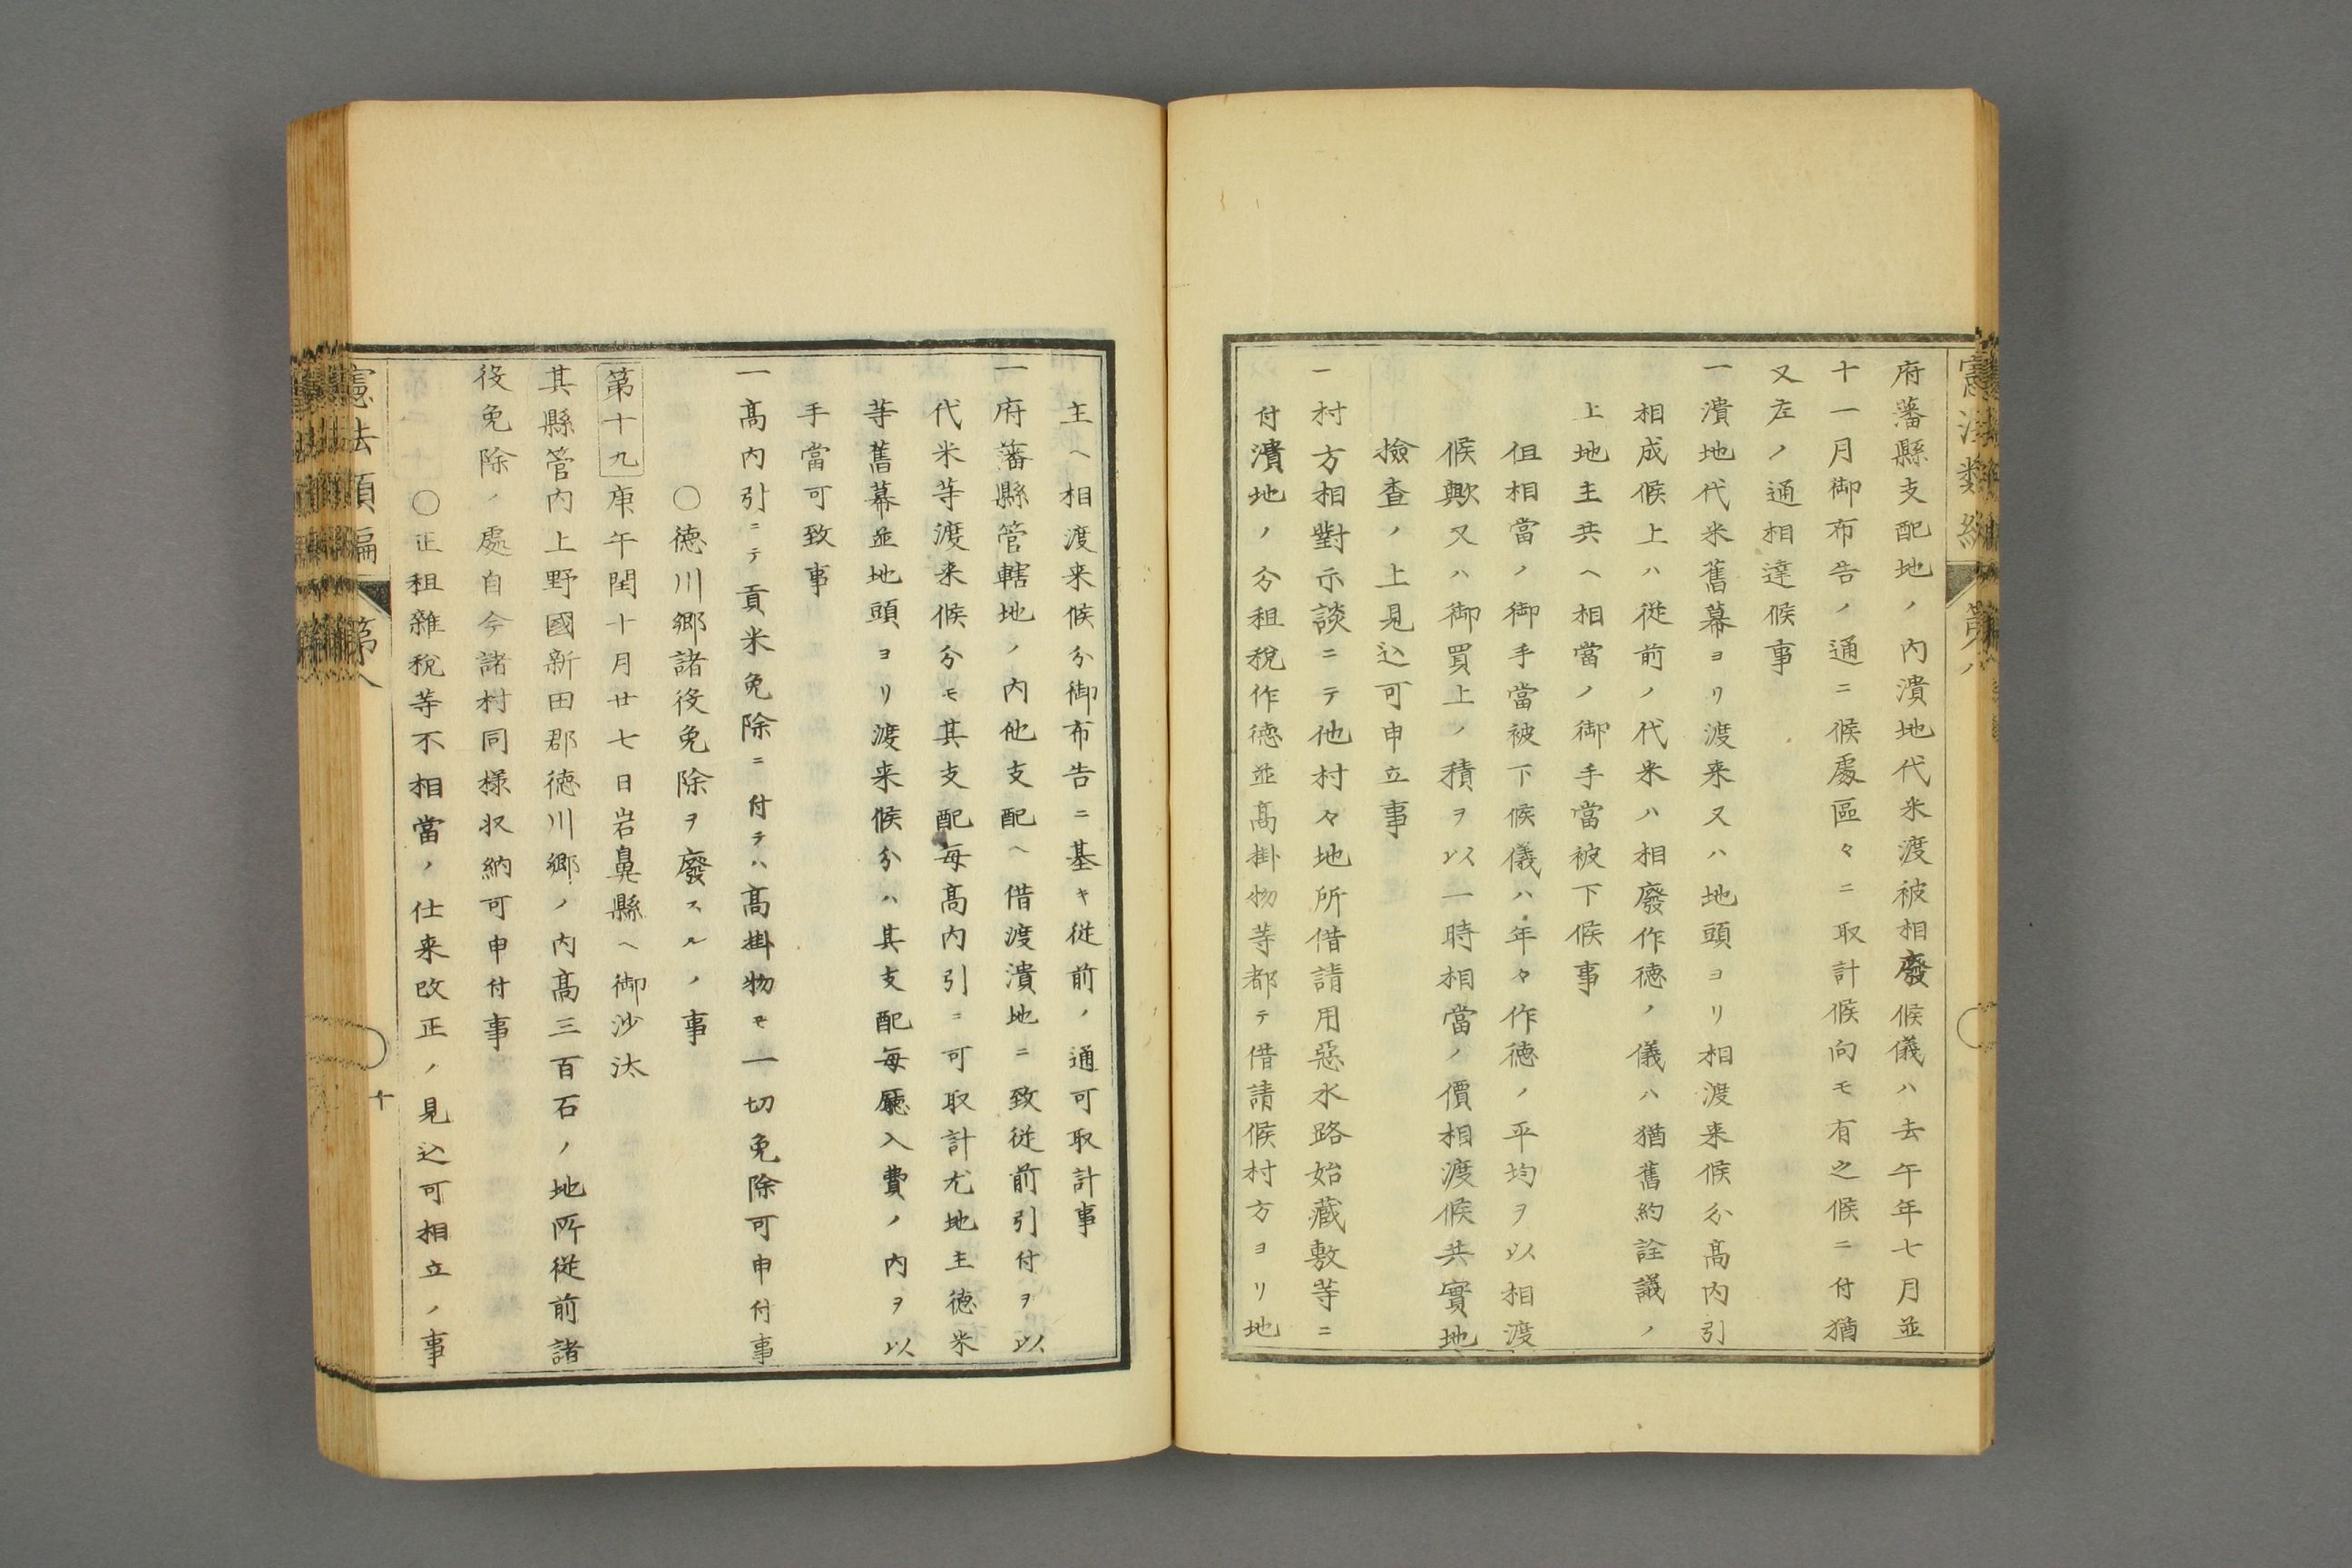 府藩縣支配地ノ内潰地代米渡被相廢候儀ハ去午年七月並
十一月御布告ノ通ニ候處區々ニ取計候向モ有之候ニ付猶
又左ノ通相達候事
一潰地代米舊幕ヨリ渡来又ハ地頭ヨリ相渡来候分髙内引
相成候上ハ從前ノ代米ハ相廢作徳ノ儀ハ猶舊約詮議ノ
上地主共ヘ相當ノ御手當被下候事
但相當ノ御手當被下候儀ハ年々作徳ノ平均ヲ以相渡
候歟又ハ御買上ノ積ヲ以一時相當ノ價相渡候共實地
撿査ノ上見込可申立事
一村方相對示談ニテ他村々地所借請用惡水路始藏敷等ニ
付潰地ノ分租税作徳並髙掛物等都テ借請候村方ヨリ地
主ヘ相渡来候分御布告ニ基キ從前ノ通可取計事
一府藩縣管轄地ノ内他支配ヘ借渡潰地ニ致從前引付ヲ以
代米等渡来候分モ其支配毎髙内引ニ可取計尤地主徳米
等舊幕並地頭ヨリ渡来候分ハ其支配毎廳入費ノ内ヲ以
手當可致事
一髙内引ニテ貢米免除ニ付テハ髙掛物モ一切免除可申付事
〇徳川郷諸役免除ヲ廢スルノ事
第十九 庚午閏十月廿七日岩鼻縣ヘ御沙汰
其縣管内上野國新田郡徳川郷ノ内髙三百石ノ地所從前諸
役免除ノ處自今諸村同様収納可申付事
〇正租雜税等不相當ノ仕来改正ノ見込可相立ノ事
憲法類編 第八
十